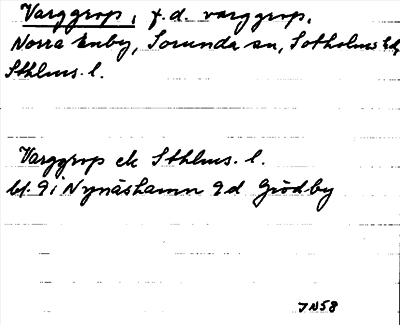 Varggrop, f.d. varggrop,
Norra Enby, Sorunda sn, Sotholms hd,
Sthlms. l.
Varggrop ek Sthlms. l.
bl. 9i Nynäshamn 9d Grödby
JN58